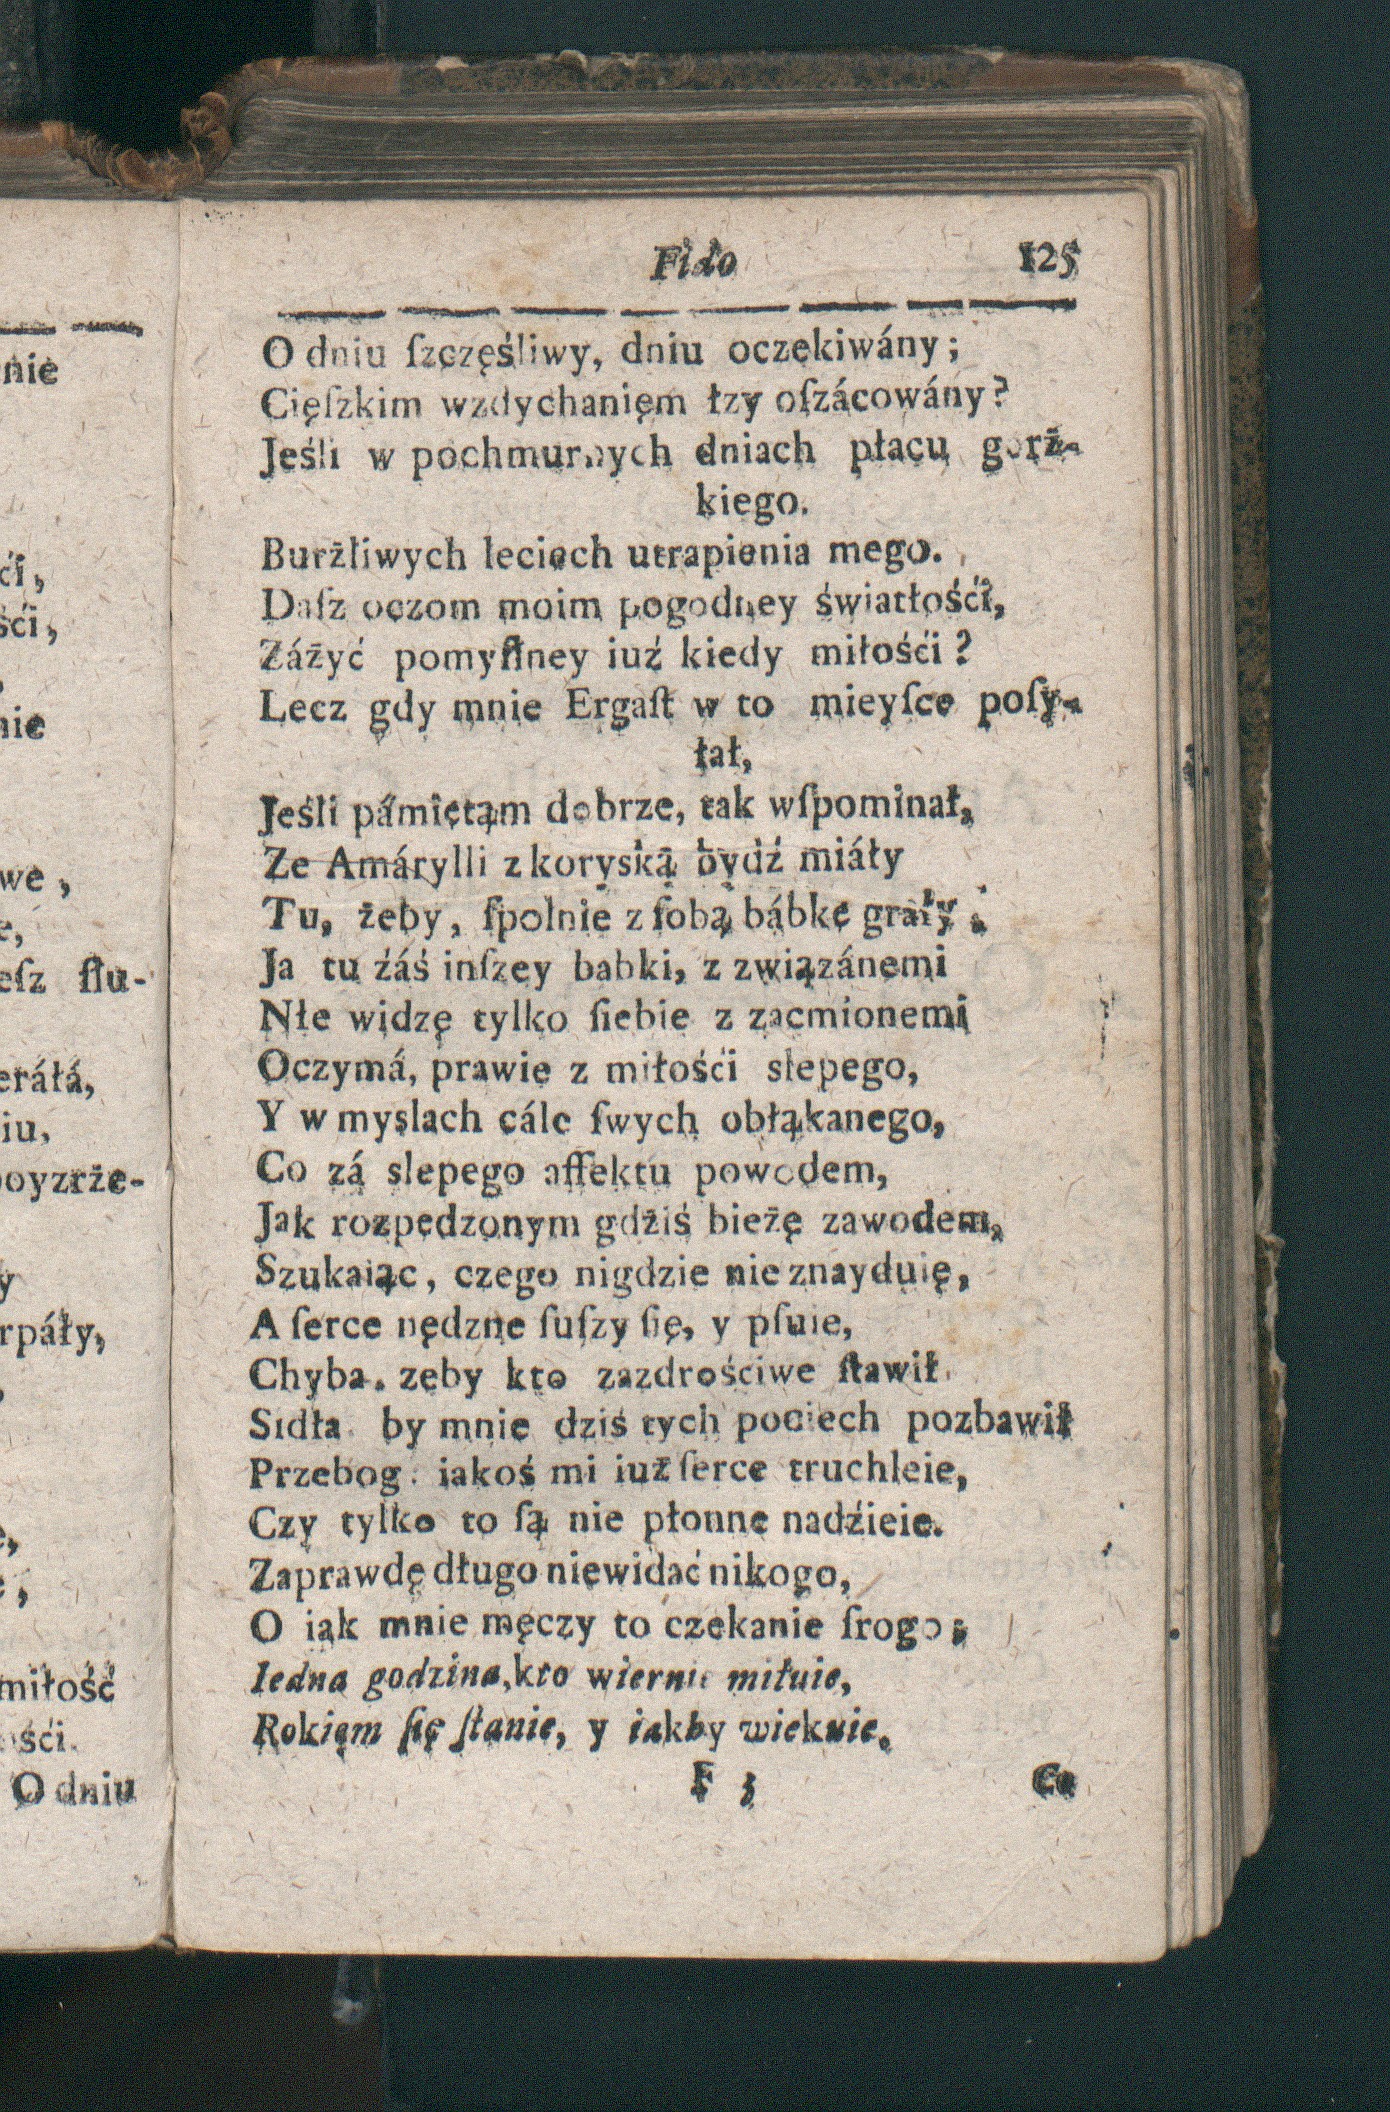 Fido 125
O dniu ſzczęśliwy, dniu oczekiwány;
Cięſzkim wzdychanięm łzy oſzácowány?
Jeśli w pochmurnych dniach płaçu gorż-
kiego.
Burżliwych leciech utrapienia mego.
Daſz oczom moim pogodney światłośći,
Záżyć pomyſlney iuź kiedy miłośći?
Lecz gdy mnie Ergaſt w to mieyſce poſy-
łał,
Jeśli pámiętąm dobrze, tak wſpominał,
Ze Amárylli z koryską bydź miáły
Tu, żeby, ſpolnie z ſobą bábkę grały;
Ja tu źáś inſzey babki, z związánemi
Nłe widzę tylko ſiebie z zacmionemi
Oczymá, prawie z miłośći slepego,
Y w myslach cále ſwych obłąkanego,
Co zá slepego affektu powodem,
Jak rozpędzonym gdżiś bieżę zawodem,
Szukaiąc, czego nigdzie nie znayduię,
A ſerce nędzne ſuſzy ſię, y pſuie,
Chyba. zeby kto zazdrościwe ſtawił
Sidła by mnie dziś tych pociech pozbawił
Przebog. iakoś mi iuż ſerce truchleie,
Czy tylko to ſą nie płonne nadźieie.
Zaprawdę długo niewidać nikogo,
O iąk mnie męczy to czekanie ſrogo;
Iedna godzina, kto wiernie miłuie,
Rokięm ſię ſtanie, y iakby wiekuie.
F 3 Co
nie
ći,
śći,
nie
we,
e,
eſz ſlu-
eráłá,
iu,
poyzrże-
y
rpáły,
e,
e,
miłość
ośći.
O dniu